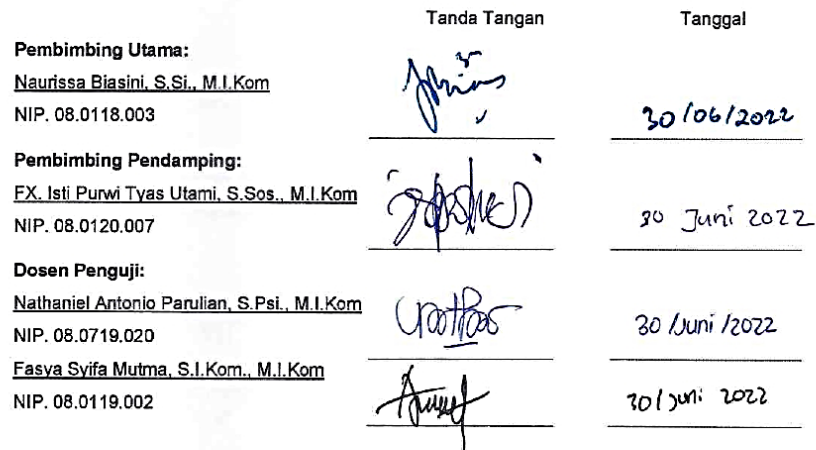 Tanda Tangan Tanggal
Pembimbing Utama:
Naurissa Biasini, S.Si., M.I.Kom
NIP. 08.0118.003 30/06/2022
Pembimbing Pendamping:
FX. Isti Purwi Tyas Utami, S.Sos., M.I.Kom
NIP. 08.0120.007 30 Juni 2022
Dosen Penguji:
Nathaniel Antonio Parulian, S.Psi., M.I.Kom
NIP. 08.0719.020 30 /Juni /2022
Fasya Syifa Mutma, S.I.Kom., M.I.Kom
NIP. 08.0119.002 30/ juni 2022